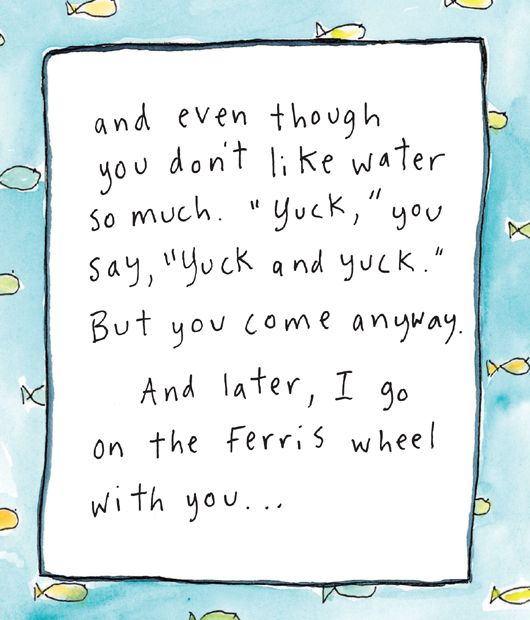 and even though
you don't like water
so much. "Yuck," you
say, "Yuck and yuck."
But you come anyway.
And later, I go
on the Ferris wheel
with you...